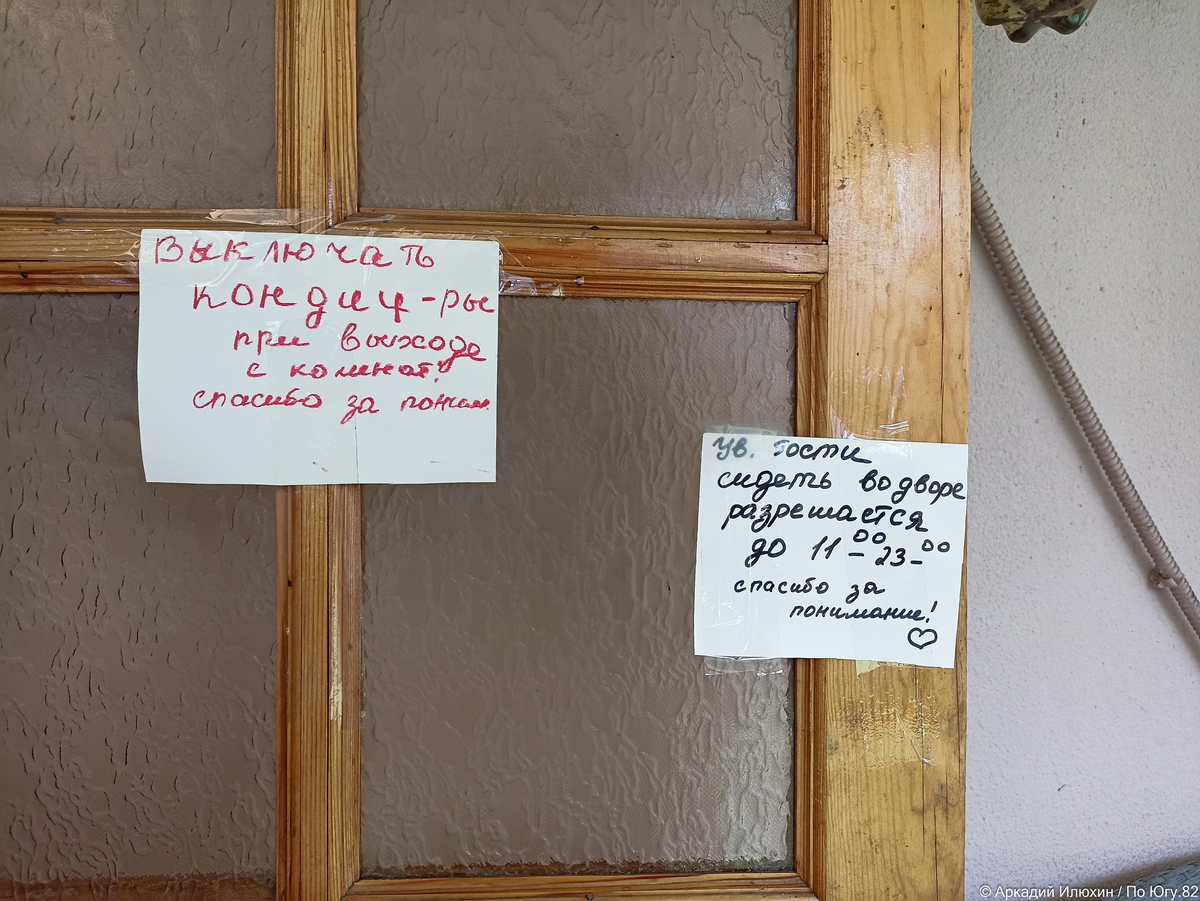 Выключать
кондиц-ры
при выходе
с комнат!
спасибо за поним.
Ув. Гости
сидеть во дворе
разрешается
до 11-00 23-00
спасибо за
понимание!
© Аркадий Илюхин / По Югу.82